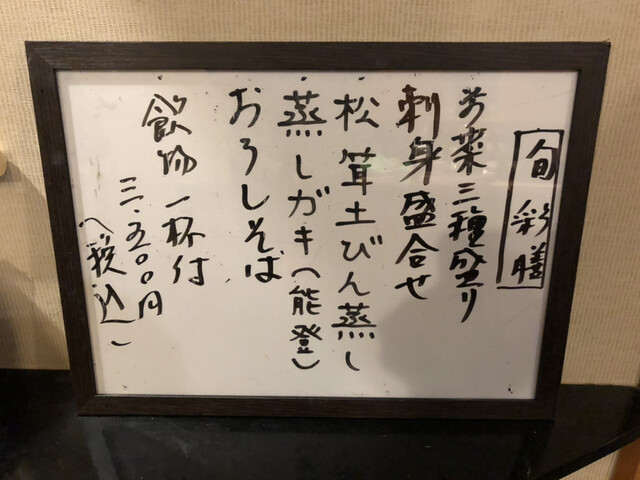 旬彩膳
お菜三種盛り
刺身盛合せ
松茸土びん蒸し
蒸しガキ(能登)
おろしそば
飲物一杯付
三.五〇〇円
(税込)